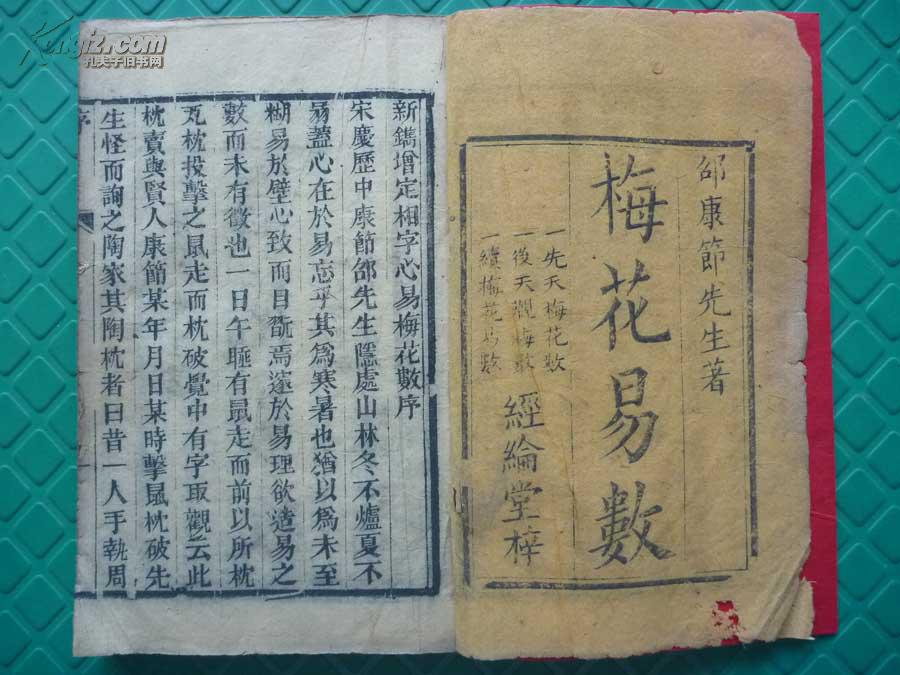 邵康節先生著
梅花易數
一先天梅花數
一後天觀梅數
一續梅花易數
經綸堂梓
新鐫增定相字心易梅花數序
宋慶歷中康節邵先生隱處山林冬不爐夏不
扇蓋心在於易忘乎其爲寒暑也猶以爲未至
糊易於壁心致而目翫焉邃於易理欲造易之
數而未有徵也一日午睡有鼠走而前以所枕
瓦枕投擊之鼠走而枕破覺中有字取觀云此
枕賣與賢人康節某年月日某時擊鼠枕破先
生怪而詢之陶家其陶枕者曰昔一人手執周
序
Kongfz.com
孔夫子旧书网